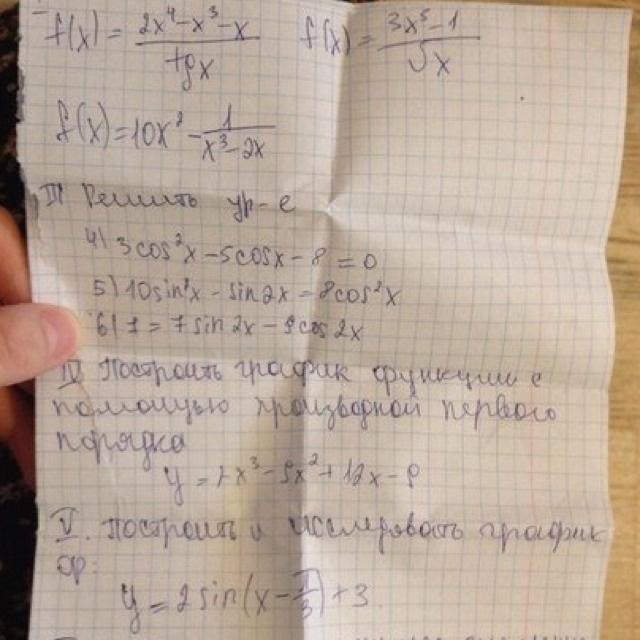 f(x) = (2x⁴ - x³ - x) / tg x    f(x) = (3x⁵ - 1) / √x
f(x) = 10x² - 1 / (x³ - 2x)
III Решить ур-е
4) 3cos²x - 5cosx - 8 = 0
5) 10sin²x - sin2x = 8cos²x
6) 1 = 7sin2x - 9cos2x
IV Построить график функции с
помощью производной первого
порядка
y = 2x³ - 9x² + 12x - 9
V. Построить и исследовать график
ф:
y = 2sin(x - π/3) + 3